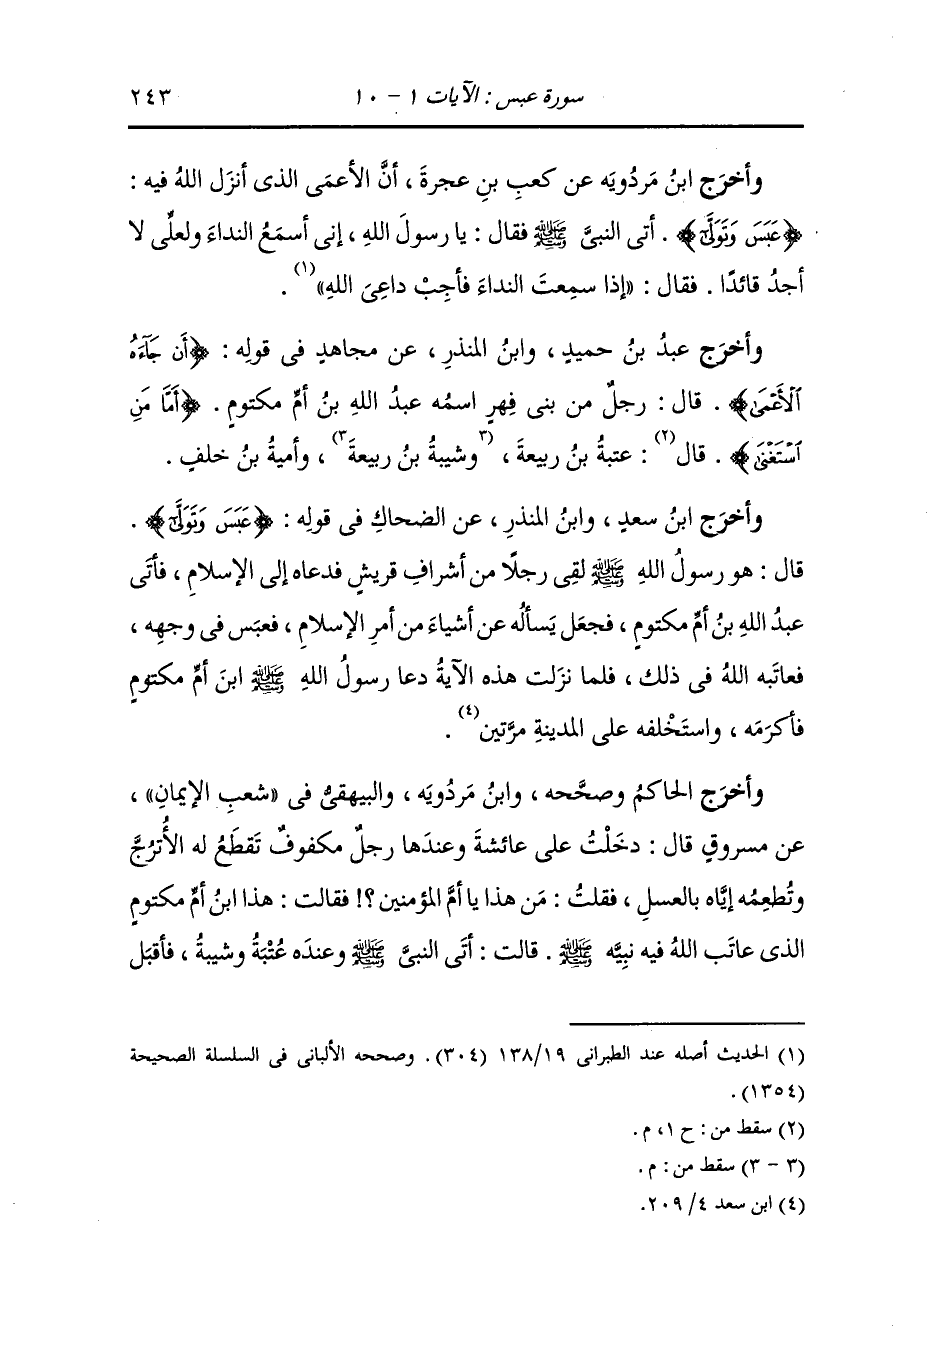 سورة عبس : الآيات ١ - ١٠ ٢٤٣
وأخرَج ابنُ مَردُويَه عن كعبِ بنِ عجرةَ ، أنَّ الأعمَى الذى أنزَل اللهُ فيه :
﴿عَبَسَ وَتَوَلَّىٰٓ﴾ . أتى النبىَّ ﷺ فقال : يا رسولَ اللهِ ، إنى أسمَعُ النداءَ ولعلِّى لا
أجدُ قائدًا . فقال : «إذا سمِعتَ النداءَ فأجِبْ داعِىَ اللهِ»(١) .
وأخرَج عبدُ بنُ حميدٍ ، وابنُ المنذرِ ، عن مجاهدٍ فى قولِه : ﴿أَن جَآءَهُ
ٱلْأَعْمَىٰ﴾ . قال : رجلٌ من بنى فِهرٍ اسمُه عبدُ اللهِ بنُ أمِّ مكتومٍ . ﴿أَمَّا مَنِ
ٱسْتَغْنَىٰ﴾ . قال(٢) : عتبةُ بنُ ربيعةَ ، (٣وشيبةُ بنُ ربيعةَ٣) ، وأميةُ بنُ خلفٍ .
وأخرَج ابنُ سعدٍ ، وابنُ المنذرِ ، عن الضحاكِ فى قولِه : ﴿عَبَسَ وَتَوَلَّىٰٓ﴾ .
قال : هو رسولُ اللهِ ﷺ لقِى رجلًا من أشرافِ قريشٍ فدعاه إلى الإسلامِ ، فأتَى
عبدُ اللهِ بنُ أمِّ مكتومٍ ، فجعَل يَسألُه عن أشياءَ من أمرِ الإسلامِ ، فعبَس فى وجهِه ،
فعاتَبه اللهُ فى ذلك ، فلما نزَلت هذه الآيةُ دعا رسولُ اللهِ ﷺ ابنَ أمِّ مكتومٍ
فأكرَمَه ، واستَخْلفه على المدينةِ مرَّتين(٤) .
وأخرَج الحاكمُ وصحَّحه ، وابنُ مَردُويَه ، والبيهقىُّ فى «شعبِ الإيمانِ» ،
عن مسروقٍ قال : دخَلْتُ على عائشةَ وعندَها رجلٌ مكفوفٌ تَقطَعُ له الأُترُجَّ
وتُطعِمُه إيَّاه بالعسلِ ، فقلتُ : مَن هذا يا أمَّ المؤمنين ؟! فقالت : هذا ابنُ أمِّ مكتومٍ
الذى عاتَب اللهُ فيه نبِيَّه ﷺ . قالت : أتَى النبىَّ ﷺ وعندَه عُتْبَةُ وشيبةُ ، فأقبَل
(١) الحديث أصله عند الطبرانى ١٣٨/١٩ (٣٠٤). وصححه الألبانى فى السلسلة الصحيحة
(١٣٥٤).
(٢) سقط من : ح ١، م.
(٣ - ٣) سقط من : م.
(٤) ابن سعد ٤/ ٢٠٩.